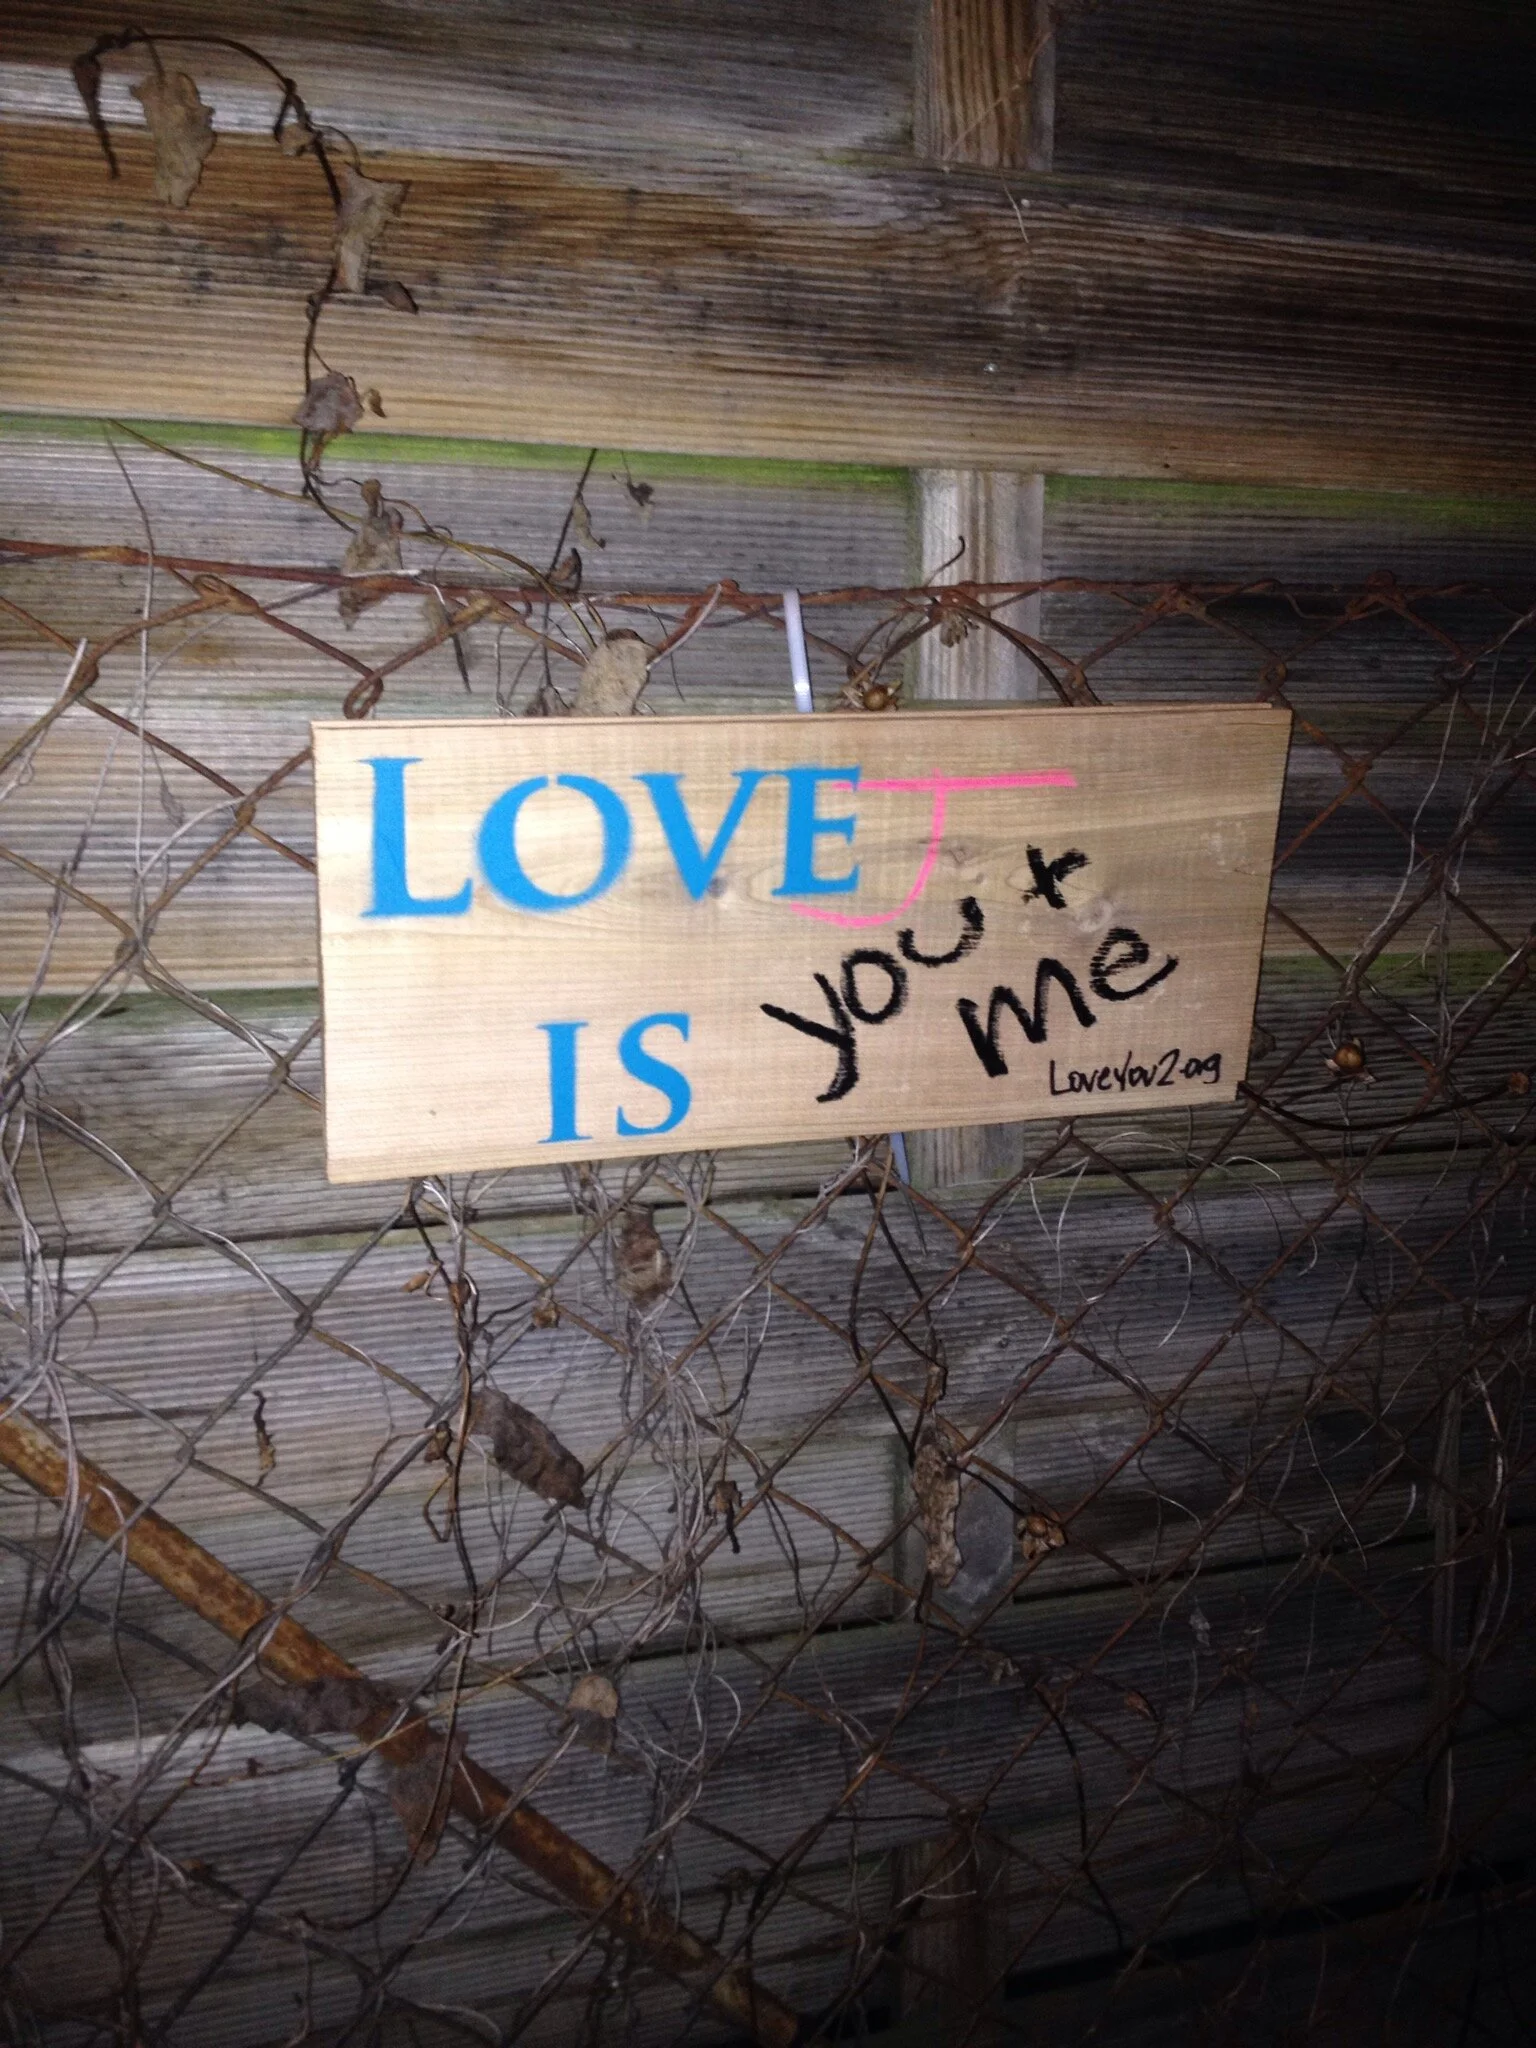 LOVE J
IS you +
me
LoveYou2.org